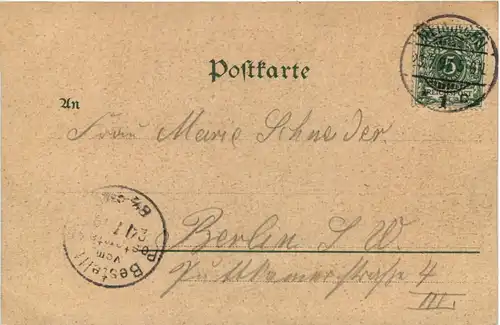 Postkarte
An
Frau Marie Schneider
Berlin S. W.
Puttkamerstraße 4
III.
5
Bestellt
vom
Postamte